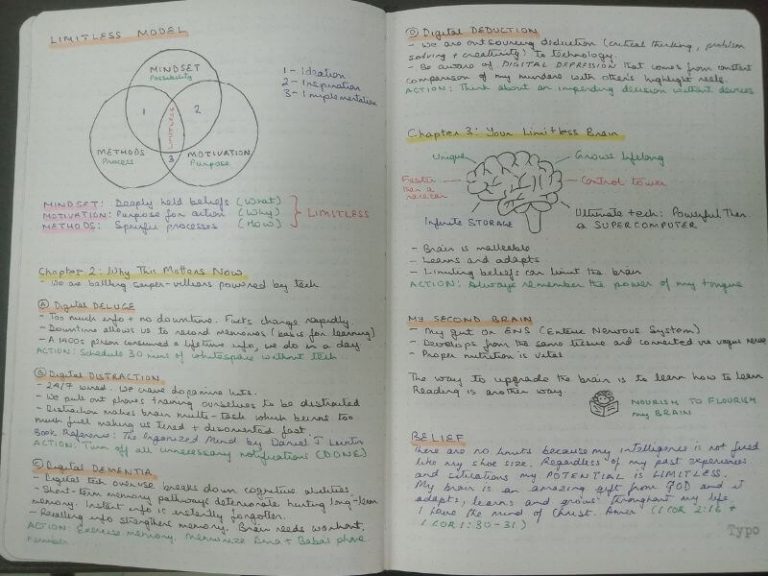 LIMITLESS MODEL
MINDSET
Possibility
1
2
LIMITLESS
3
METHODS
Process
MOTIVATION
Purpose
1 - Ideation
2 - Inspiration
3 - Implementation
MINDSET: Deeply held beliefs (What)
MOTIVATION: Purpose for action (Why)
METHODS: Specific processes (How)
LIMITLESS
Chapter 2: Why This Matters Now
- We are battling super-villians powered by tech
A Digital DELUGE
- Too much info + no downtime. Facts change rapidly
- Downtime allows us to record memories (basis for learning)
- A 1400s person consumed a lifetime info, we do in a day
ACTION: Schedule 30 mins of whitespace without tech
B Digital DISTRACTION
- 24/7 wired. We crave dopamine hits.
- We pull out phones training ourselves to be distracted
- Distraction makes brain multi-task which burns too
much fuel making us tired + disoriented fast
Book Reference: The Organized Mind by Daniel J Levitin
ACTION: Turn off all unnecessary notifications (DONE)
C Digital DEMENTIA
- Digital tech overuse breaks down cognitive abilities.
- Short-term memory pathways deteriorate hurting long-term
memory. Instant info is instantly forgotten.
- Recalling info strengthens memory. Brain needs workout.
ACTION: Exercise memory. Memorize + Baba's phone
number
D Digital DEDUCTION
- We are outsourcing deduction (critical thinking, problem
solving + creativity) to technology
- Be aware of DIGITAL DEPRESSION that comes from constant
comparison of my mundane with other's highlight reels.
ACTION: Think about an impending decision without devices
Chapter 3: Your Limitless Brain
Unique
Grows lifelong
Faster
than a
racecar
Control tower
Infinite STORAGE
Ultimate tech: Powerful than
a SUPERCOMPUTER
- Brain is malleable
- Learns and adapts
- Limiting beliefs can limit the brain
ACTION: Always remember the power of my tongue
MY SECOND BRAIN
- My gut or ENS (Enteric Nervous System)
- Develops from the same tissue and connected via vagus nerve
- Proper nutrition is vital
The way to upgrade the brain is to learn how to learn
Reading is another way.
NOURISH TO FLOURISH
my BRAIN
BELIEF
There are no limits because my intelligence is not fixed
like my shoe size. Regardless of my past experiences
and situations my POTENTIAL is LIMITLESS.
My brain is an amazing gift from GOD and it
adapts, learns and grows throughout my life
I have the mind of Christ. Amen (1 COR 2:16 +
1 COR 1:30-31)
Typo